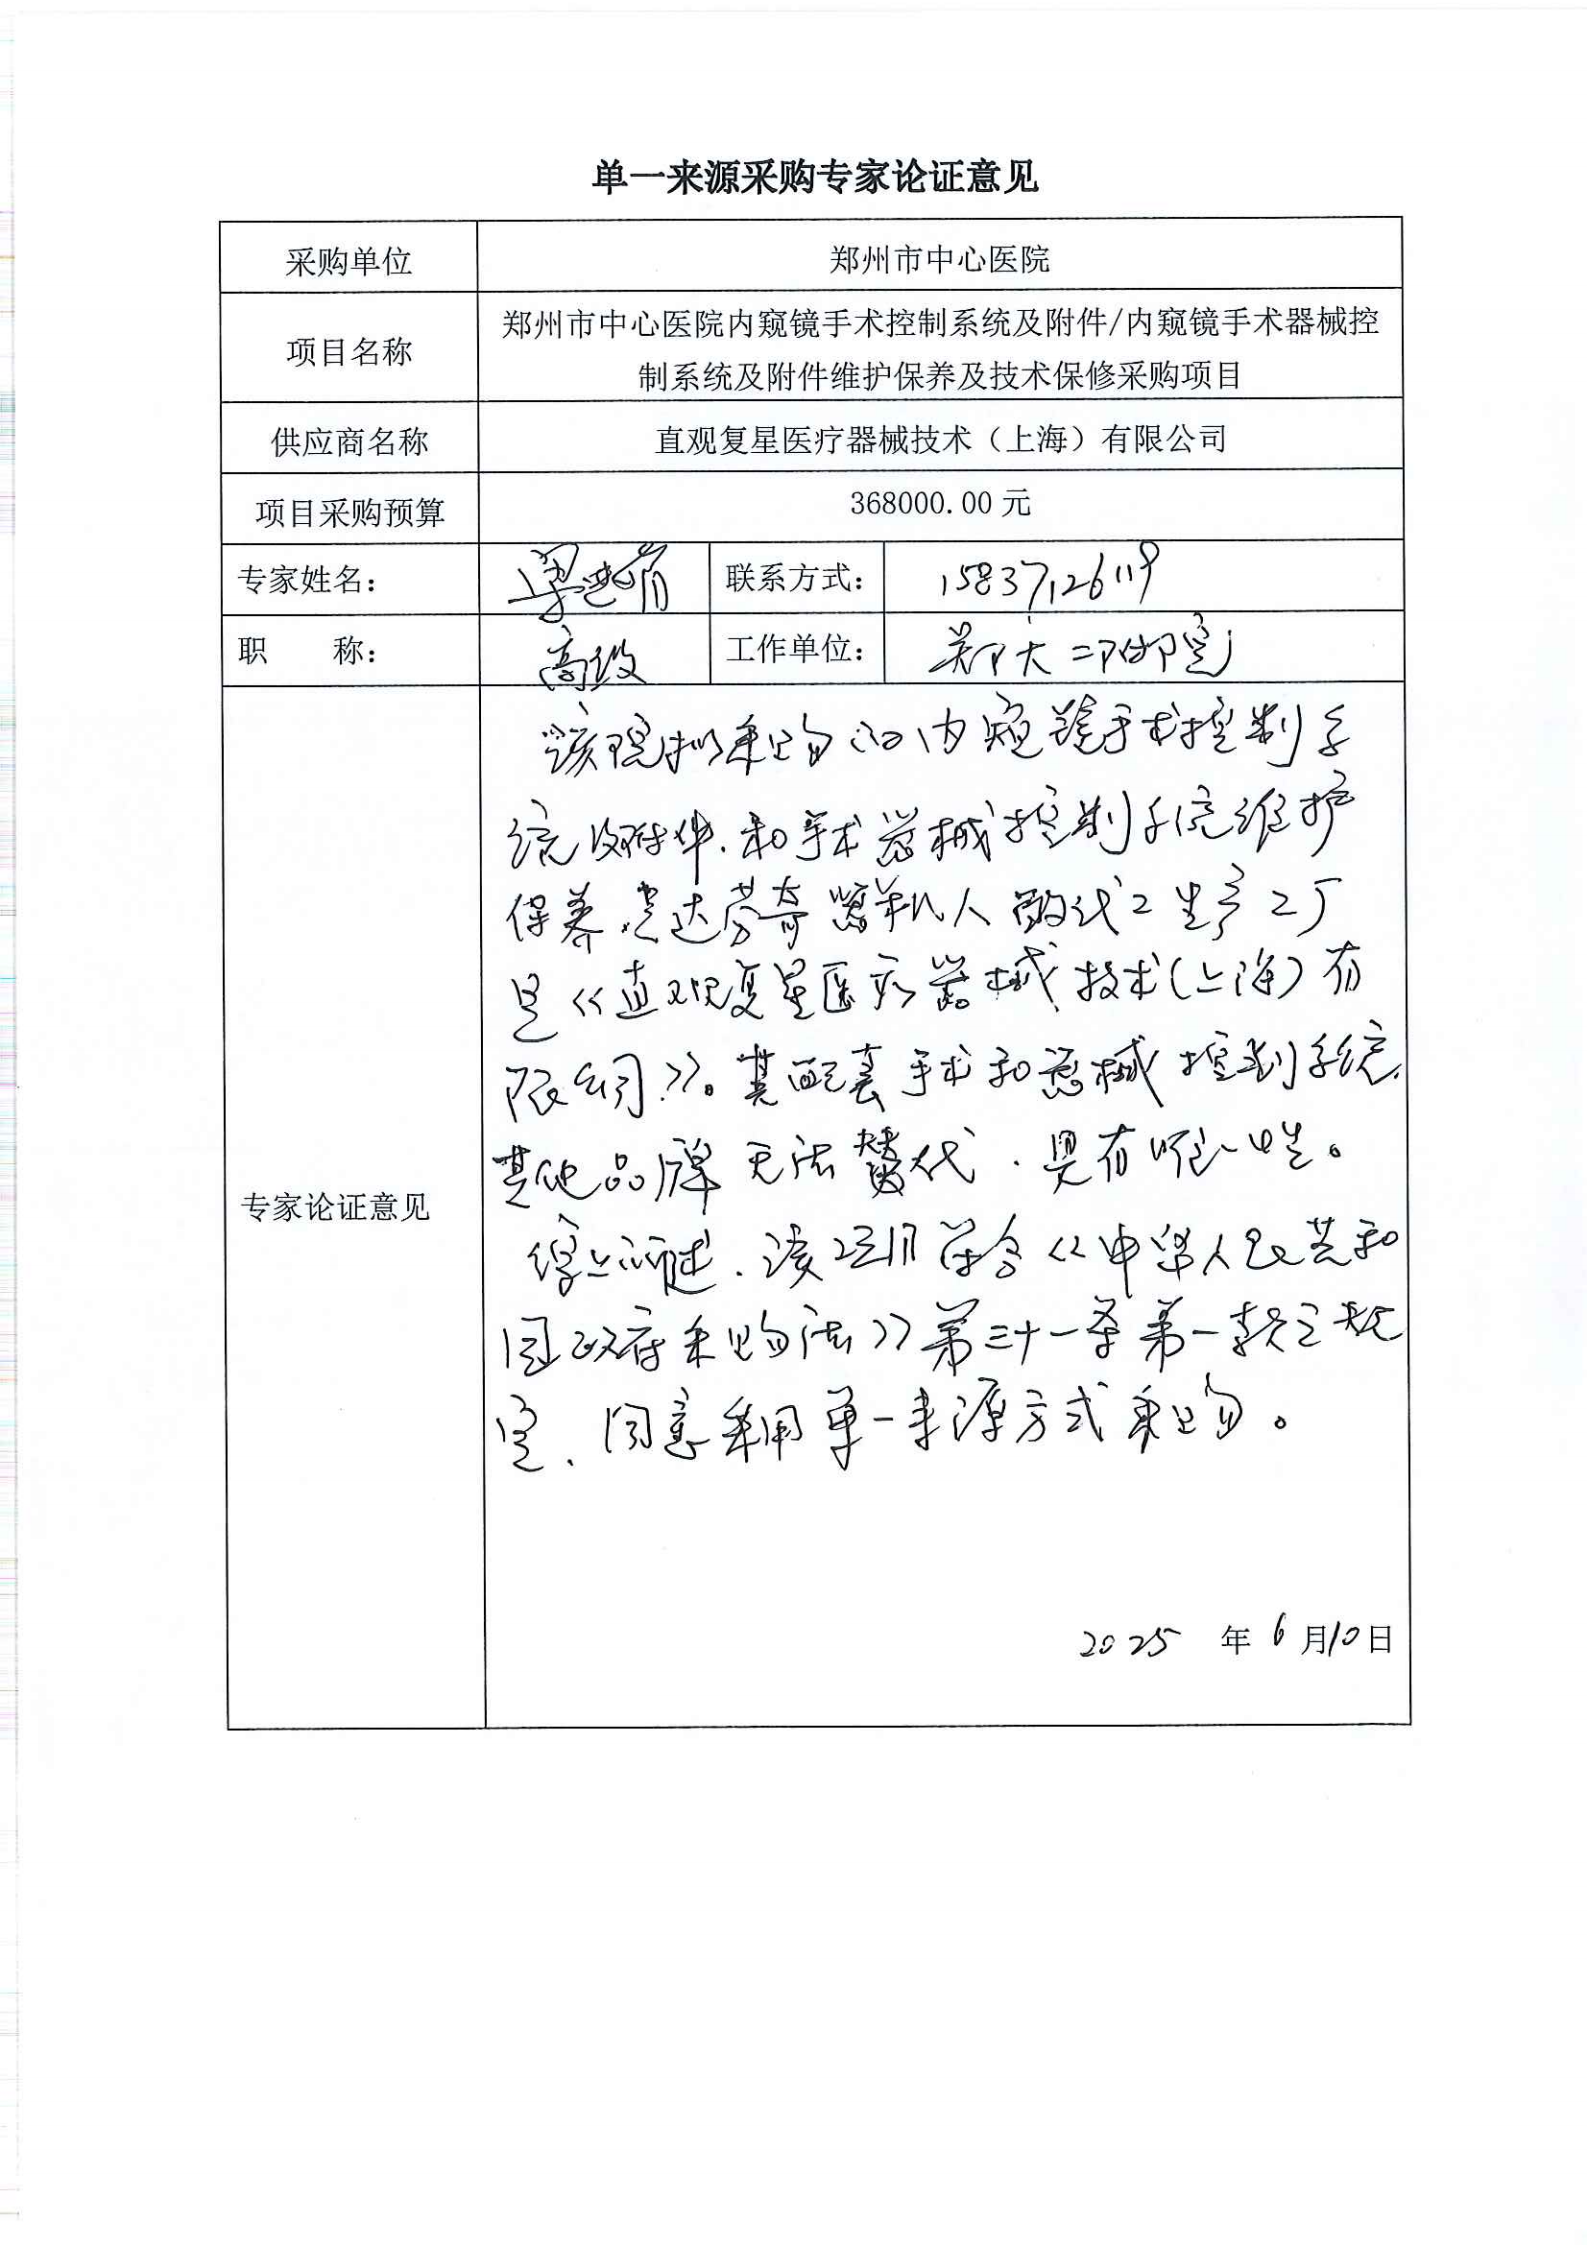 单一来源采购专家论证意见
采购单位
郑州市中心医院
项目名称
郑州市中心医院内窥镜手术控制系统及附件/内窥镜手术器械控
制系统及附件维护保养及技术保修采购项目
供应商名称
直观复星医疗器械技术（上海）有限公司
项目采购预算
368000.00 元
专家姓名：
梁
联系方式：
15837126119
职 称：
高级
工作单位：
郑大二附院
专家论证意见
该院拟采购的内窥镜手术控制系
统及附件、和手术器械控制系统维护
保养是达芬奇器机人 生产工厂
是《直观复星医疗器械技术(上海)有
限公司》。其配套手术和器械控制系统、
其他品牌无法替代、具有唯一性。
综上所述、该项目符合《中华人民共和
国政府采购法》第三十一条第一款之规
定、同意采用单一来源方式采购。
2025 年 6 月 10 日